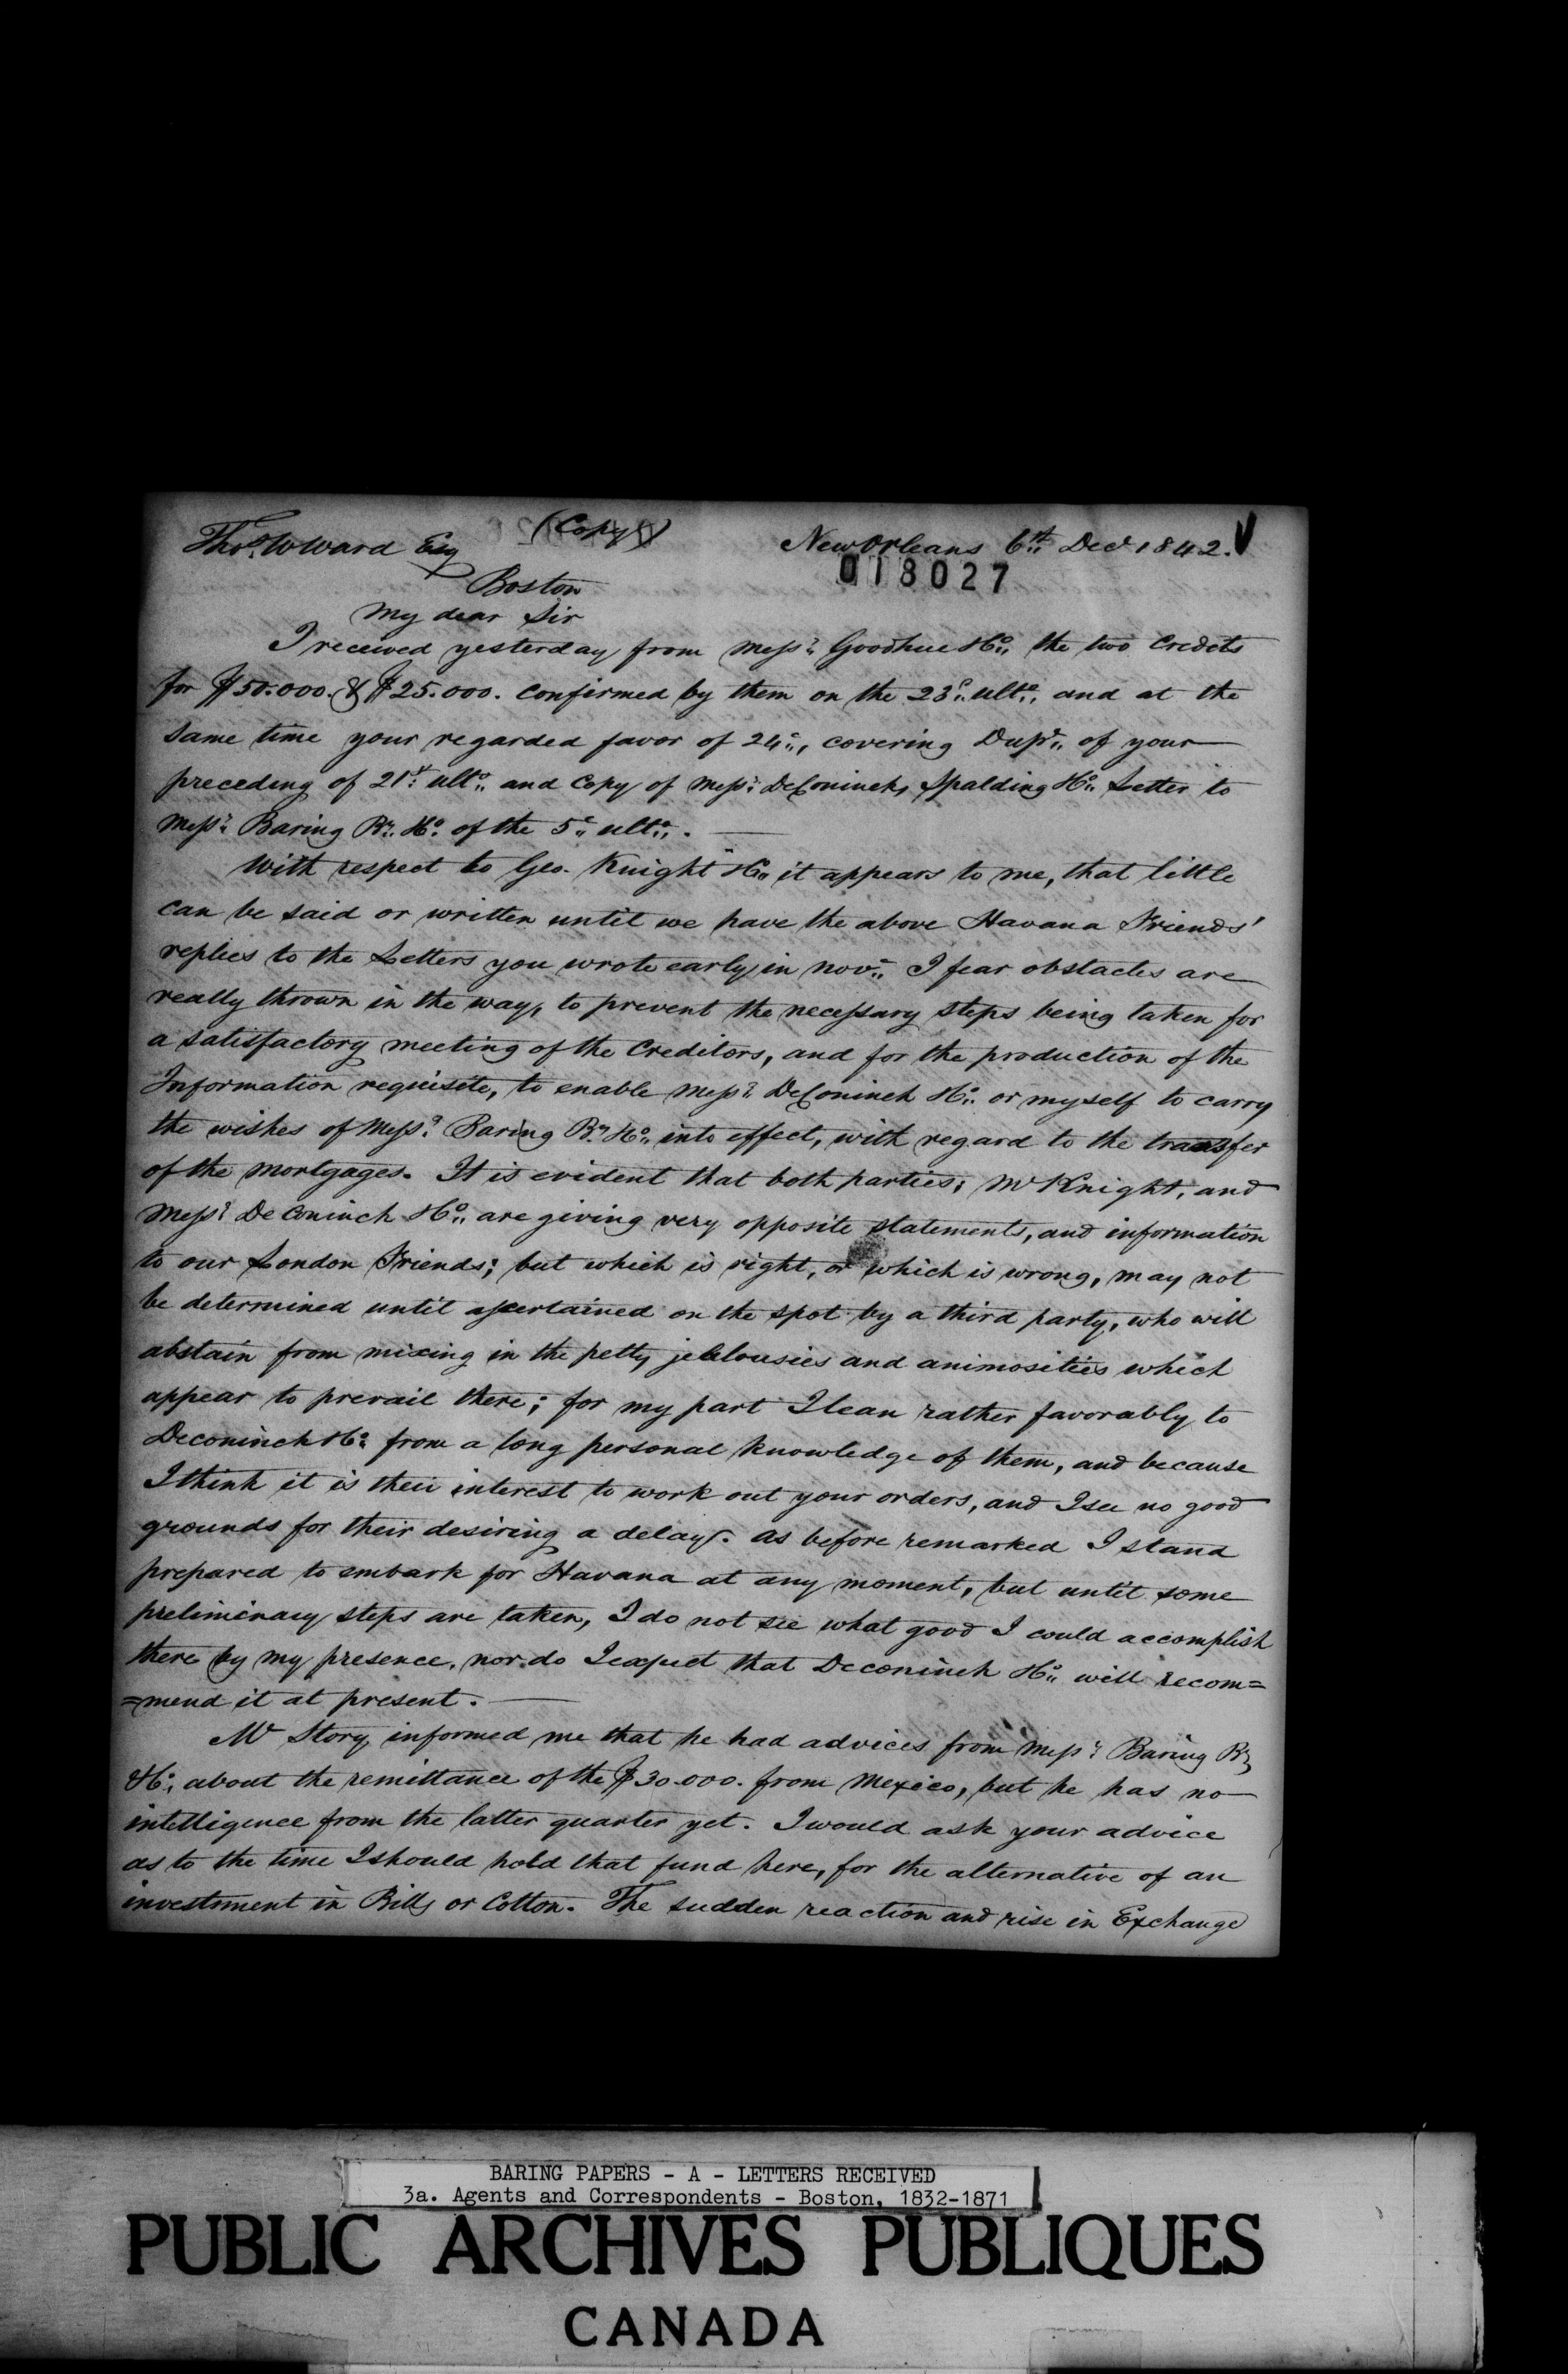 (Copy)
Thos. W Ward Esq
New Orleans 6th Decr 1842. V
018027
Boston
My dear Sir
I received yesterday from Messrs Goodhue & Co. the two Credits
for $50.000. & $25.000. confirmed by them on the 23d ulto, and at the
same time your regarded favor of 24th, covering Dupte of your
preceding of 21st ulto and Copy of Messrs DeConinck, Spalding & Co. Letter to
Messrs Baring Brs & Co. of the 5th ulto. —
With respect to Geo. Knight & Co. it appears to me, that little
can be said or written until we have the above Havana Friends'
replies to the Letters you wrote early in novr. I fear obstacles are
really thrown in the way, to prevent the necessary steps being taken for
a satisfactory meeting of the Creditors, and for the production of the
Information requisite, to enable Messrs DeConinck & Co. or myself to carry
the wishes of Messrs Baring Brs & Co. into effect, with regard to the transfer
of the mortgages. It is evident that both parties; Mr Knight, and
Messrs DeConinck & Co. are giving very opposite statements, and information
to our London Friends; but which is right, or which is wrong, may not
be determined until ascertained on the spot by a third party, who will
abstain from mixing in the petty jealousies and animosities which
appear to prevail there; for my part I lean rather favorably to
Deconinck & Co. from a long personal knowledge of them, and because
I think it is their interest to work out your orders, and I see no good
grounds for their desiring a delay. As before remarked I stand
prepared to embark for Havana at any moment, but until some
preliminary steps are taken, I do not see what good I could accomplish
there by my presence, nor do I expect that Deconinck & Co. will recom=
=mend it at present. —
Mr Story informed me that he had advices from Messrs Baring Brs
& Co. about the remittance of the $30.000. from Mexico, but he has no
intelligence from the latter quarter yet. I would ask your advice
as to the time I should hold that fund here, for the alternative of an
investment in Bills or Cotton. The sudden reaction and rise in Exchange
BARING PAPERS - A - LETTERS RECEIVED
3a. Agents and Correspondents - Boston, 1832-1871
PUBLIC ARCHIVES PUBLIQUES
CANADA